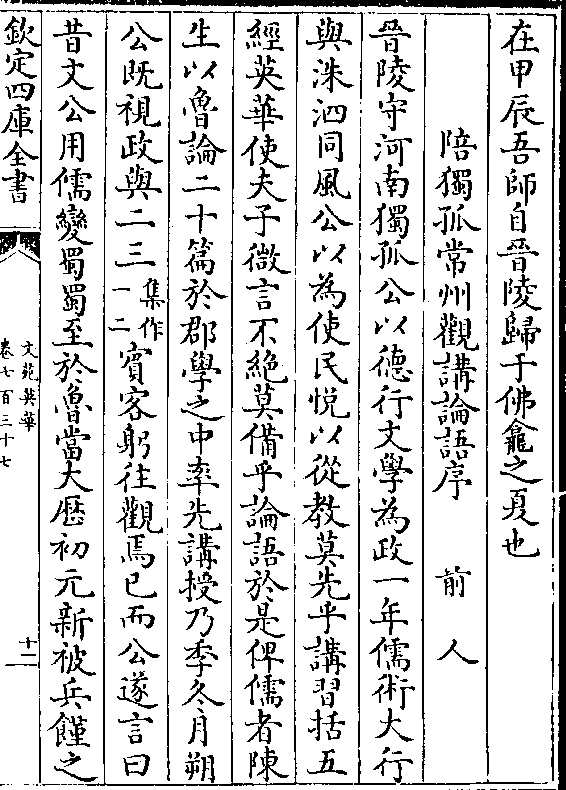 在甲辰吾師自晉陵歸于佛龕之夏也
陪獨孤常州觀講論語序 前人
晉陵守河南獨孤公以德行文學為政一年儒術大行
與洙泗同風公以為使民悦以從教莫先乎講習括五
經英華使夫子微言不絶莫備乎論語於是俾儒者陳
生以魯論二十篇於郡學之中率先講授乃季冬月朔
公既視政與二三集作一二賓客躬往觀焉已而公遂言曰
昔文公用儒變蜀蜀至於魯當大厯初元新被兵饉之
欽定四庫全書
文苑英華
卷七百三十七
十二